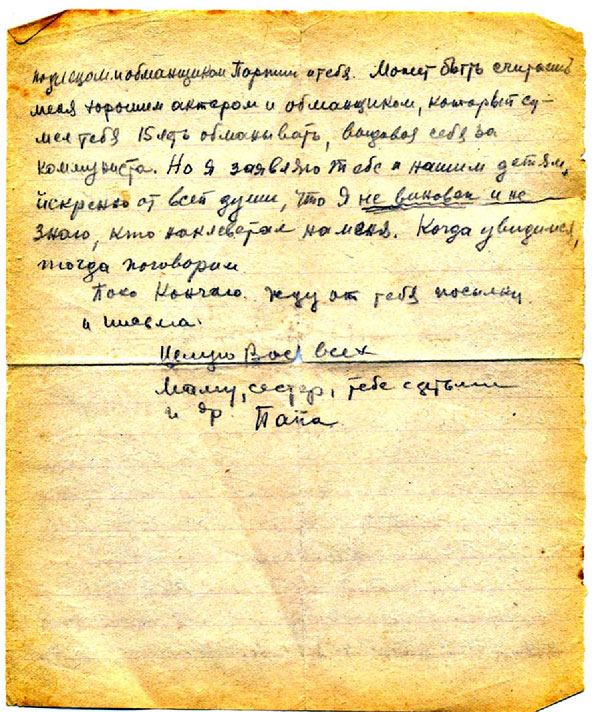 подлецом и обманщиком Партии и тебя. Может быть считаешь
меня хорошим актером и обманщиком, который су-
мел тебя 15 лет обманывать, выдавая себя за
коммуниста. Но я заявляю тебе и нашим детям,
искренно от всей души, что я не виновен и не
знаю, кто наклеветал на меня. Когда увидимся,
тогда поговорим
Пока Кончаю. Жду от тебя посылки
и письма.
Целую Вас всех
Маму, сестер, тебе с детьми
и др Папа